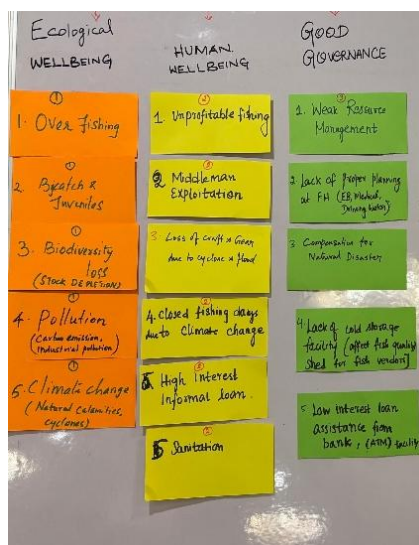 Ecological
WELLBEING
①
1. Over Fishing
①
2. Bycatch &
Juveniles
①
3. Biodiversity
loss
(STOCK DEPLETION)
①
4. Pollution
(Carbon emission,
industrial pollution)
①
5. Climate change
(Natural calamities,
cyclones)
HUMAN
WELLBEING
②
1 Unprofitable fishing
②
2 Middleman
Exploitation
3 Loss of craft & Gear
due to cyclone & flood
②
4. Closed fishing days
due to Climate change
②
5 High Interest
Informal loan.
②
Sanitation
GOOD
GOVERNANCE
③
1. Weak Resource
Management
2. Lack of Proper planning
at FH (EB, Medical,
3 Compensation for
Natural Disaster
4. Lack of cold storage
facility (affect fish quality
shed for fish vendors)
5 Low interest loan
assistance from
bank, (ATM) facility